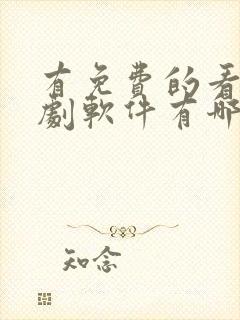 有免費的看
劇軟件有哪
知念